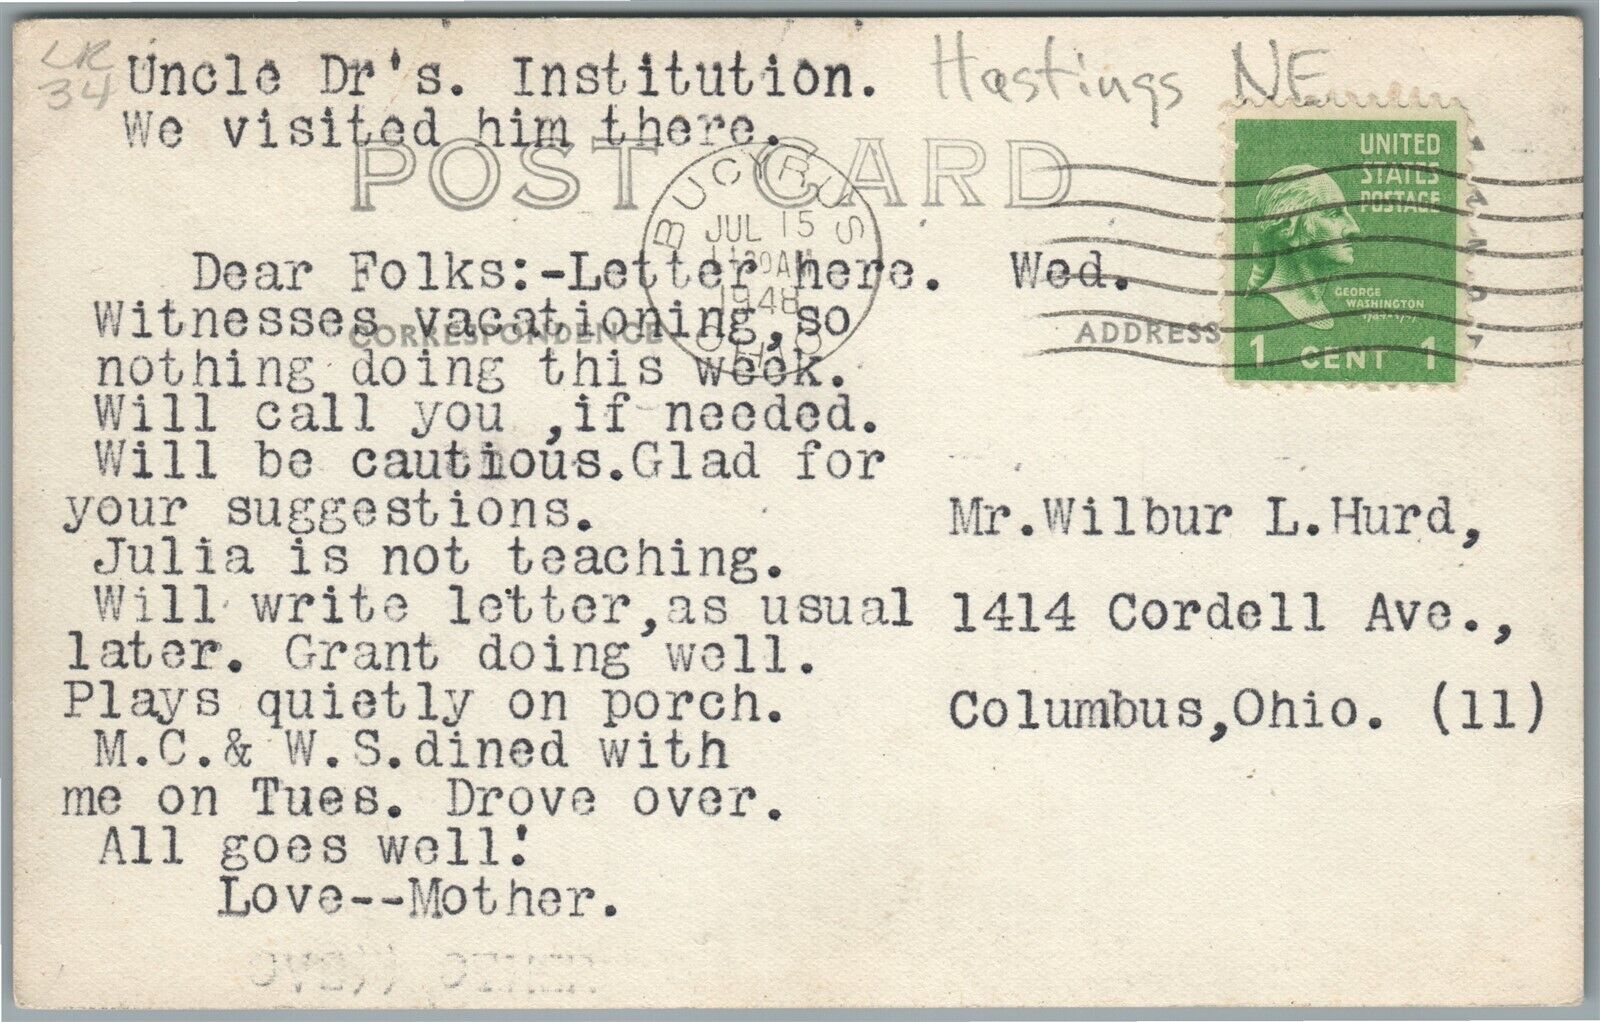 LR
34
Uncle Dr's. Institution.
We visited him there.
Hastings NE
POST CARD
UNITED
STATES
POSTAGE
GEORGE
WASHINGTON
1 CENT 1
BUCYRUS
JUL 15
AM
1948
OHIO
CORRESPONDENCE
ADDRESS
Dear Folks:-Letter here. Wed.
Witnesses vacationing,so
nothing doing this week.
Will call you ,if needed.
Will be cautious.Glad for
your suggestions.
Julia is not teaching.
Will write letter,as usual
later. Grant doing well.
Plays quietly on porch.
M.C.& W.S.dined with
me on Tues. Drove over.
All goes well!
Love--Mother.
Mr.Wilbur L.Hurd,
1414 Cordell Ave.,
Columbus,Ohio. (11)